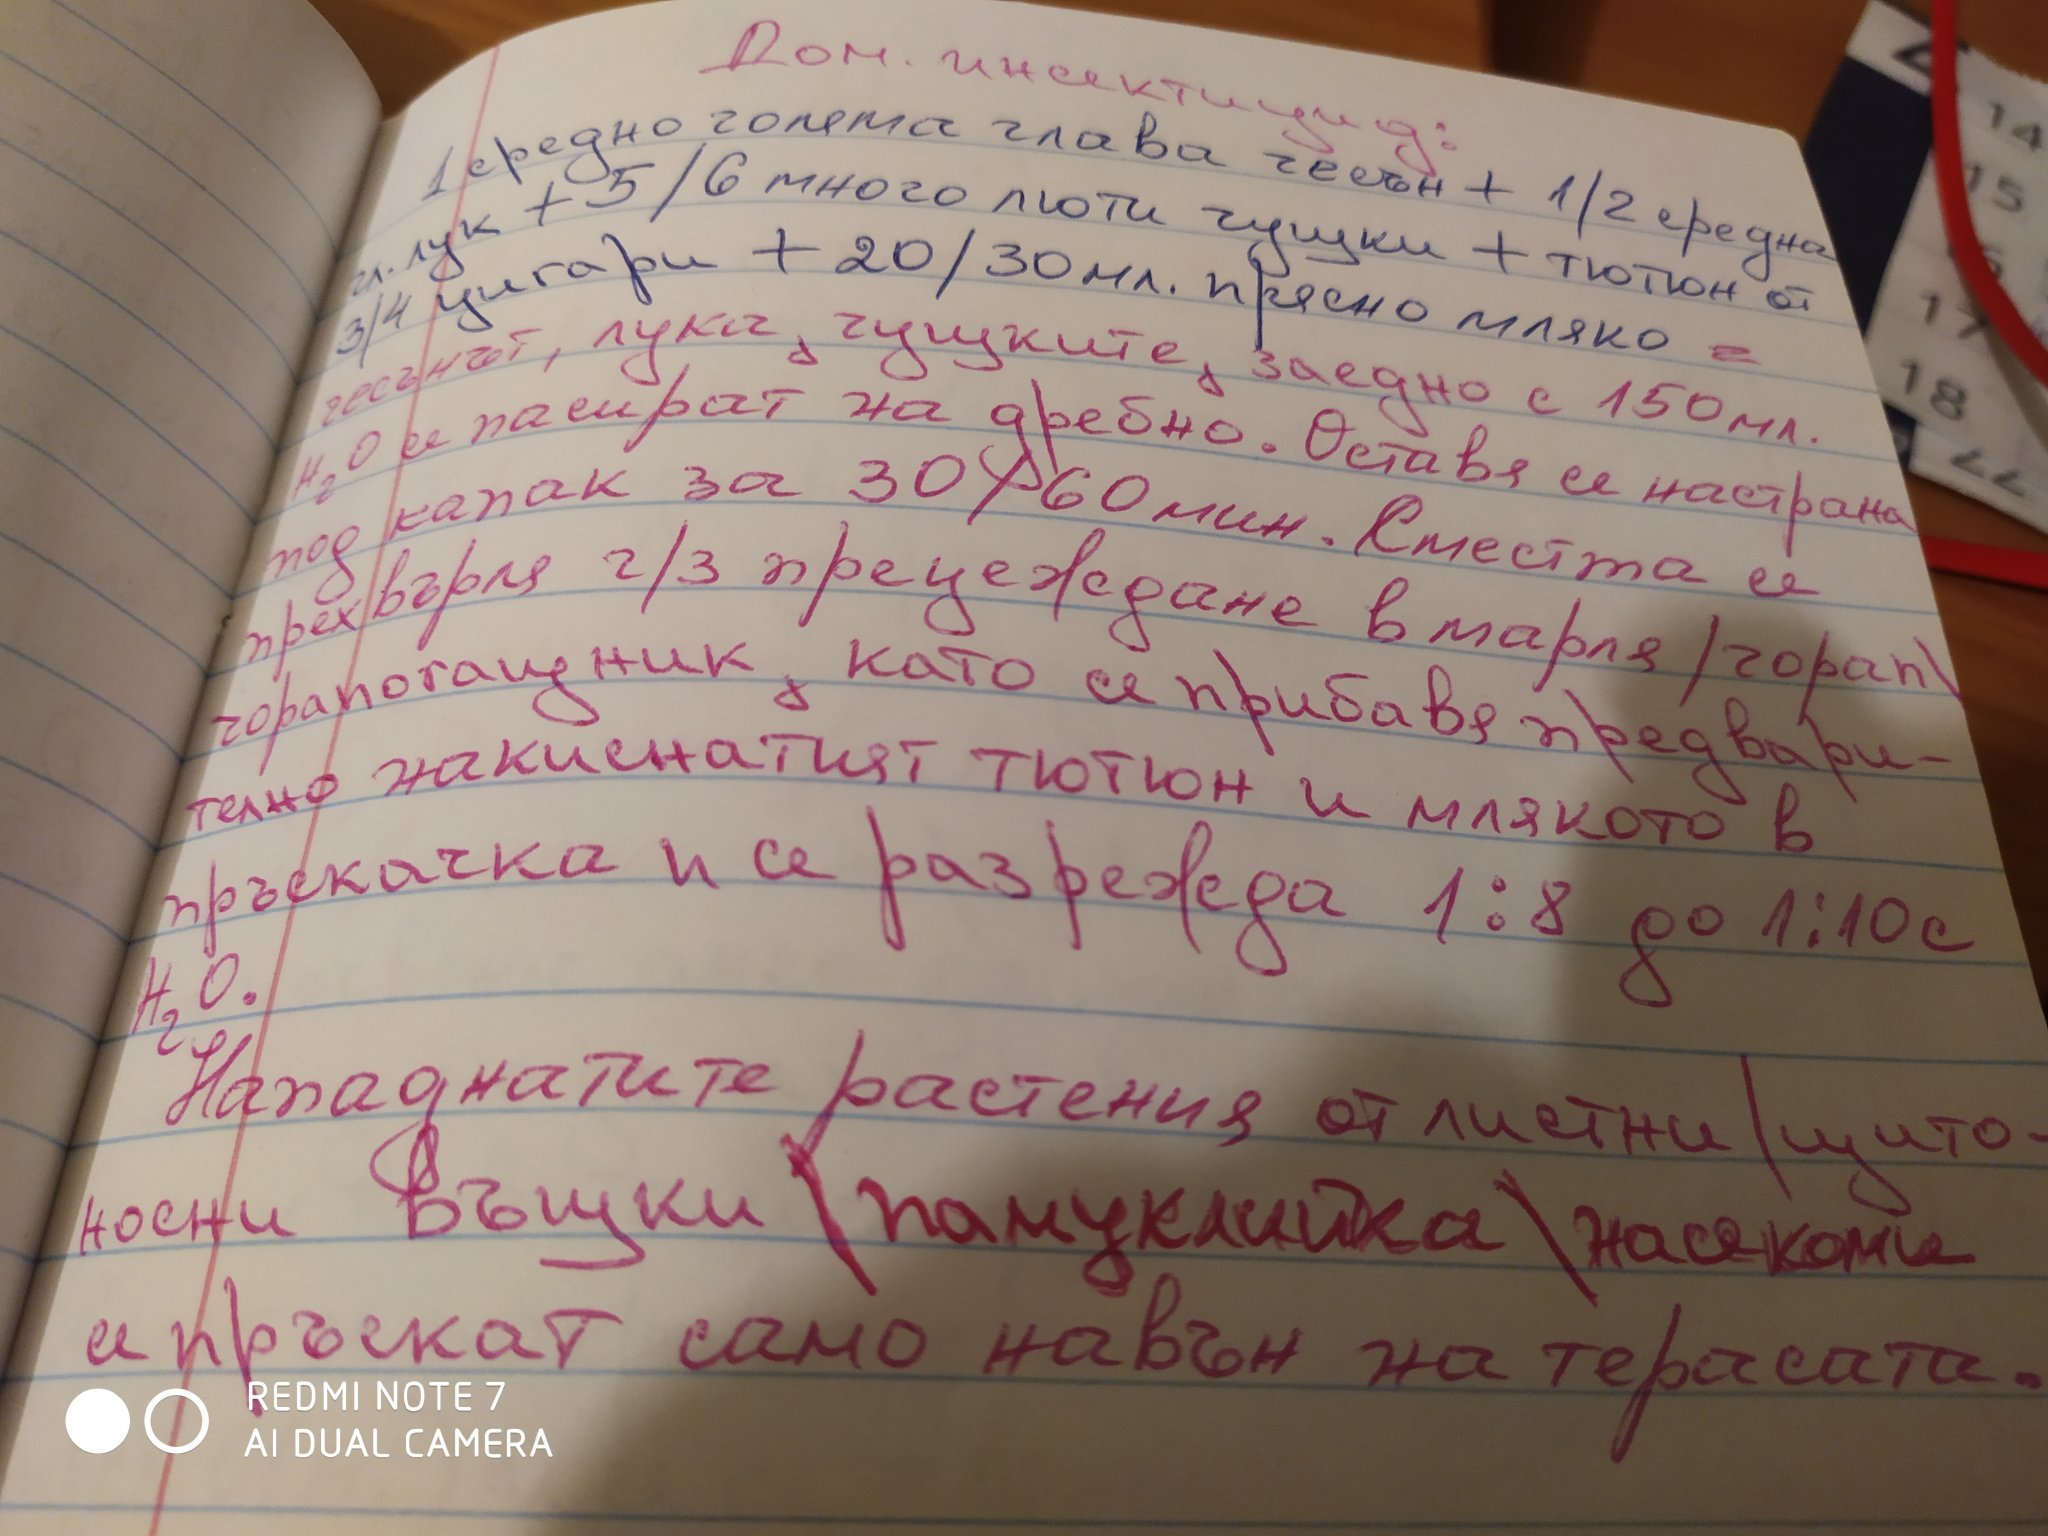 Дом. инсектицид:
1 средно голяма глава чесън + 1/2 средна
гл. лук + 5/6 много люти чушки + тютюн от
3/4 цигари + 20/30 мл. прясно мляко =
чесънът, лука, чушките, заедно с 150 мл.
H₂O се пасират на дребно. Оставя се настрана
под капак за 30/60 мин. Сместта се
прехвърля ч/з прецеждане в марля/чорап\
чорапогащник, като се прибавя предвари-
телно накиснатият тютюн и млякото в
пръскачка и се разрежда 1:8 до 1:10 с
H₂O.
Нападнатите растения от листни/щито-
носни въшки\памуклийка\насекоми
се пръскат само навън на терасата.
14
15
16
17
18
22
REDMI NOTE 7
AI DUAL CAMERA